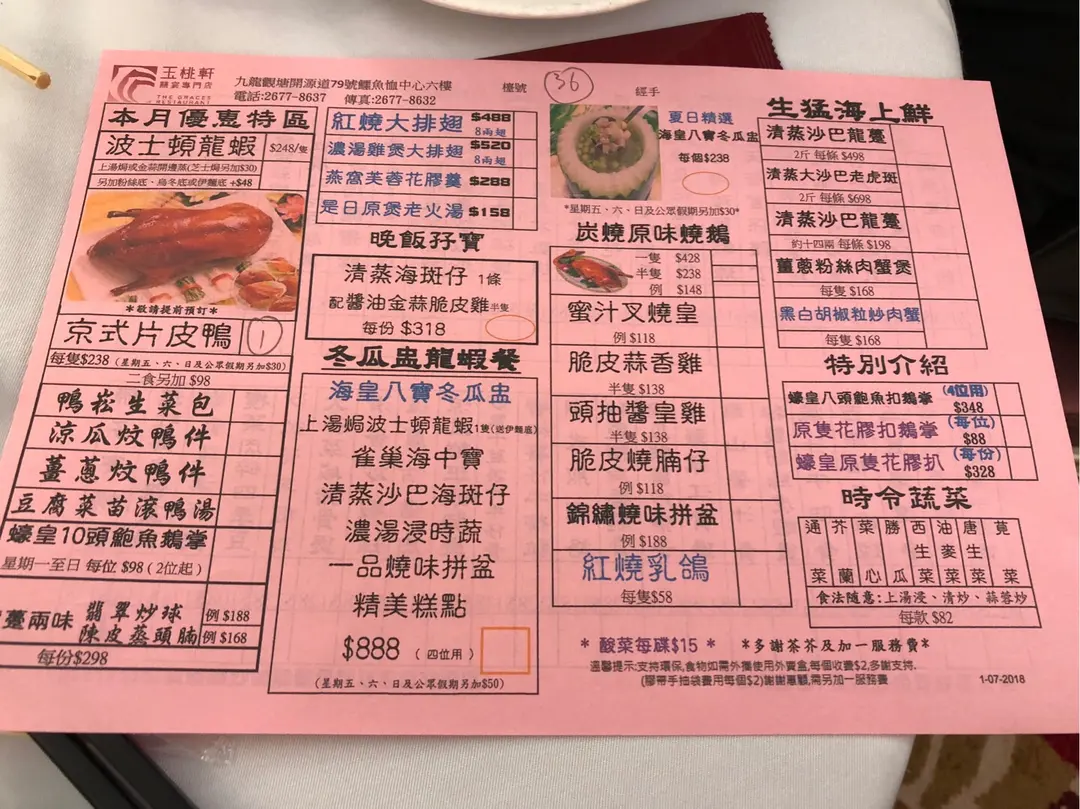 玉桃軒
囍宴專門店
THE GRACES
RESTAURANT
九龍觀塘開源道79號鱷魚恤中心六樓
電話:2677-8637 傳真:2677-8632
檯號
36
經手
本月優惠特區
波士頓龍蝦 $248/隻
上湯焗或金蒜開邊蒸(芝士焗另加$30)
另加粉絲底、烏冬底或伊麵底 +$48
*敬請提前預訂*
京式片皮鴨 1
每隻$238 (星期五、六、日及公眾假期另加$30)
二食另加 $98
鴨崧生菜包
涼瓜炆鴨件
薑蔥炆鴨件
豆腐菜苗滾鴨湯
蠔皇10頭鮑魚鵝掌
星期一至日 每位 $98 ( 2位起 )
躉兩味
翡翠炒球 例 $188
陳皮蒸頭腩 例 $168
每份$298
紅燒大排翅 $488
8兩翅
濃湯雞煲大排翅 $520
8兩翅
燕窩芙蓉花膠羹 $288
是日原煲老火湯 $158
晚飯孖寶
清蒸海斑仔 1條
配醬油金蒜脆皮雞 半隻
每份 $318
冬瓜盅龍蝦餐
海皇八寶冬瓜盅
上湯焗波士頓龍蝦1隻(送伊麵底)
雀巢海中寶
清蒸沙巴海斑仔
濃湯浸時蔬
一品燒味拼盆
精美糕點
$888 ( 四位用 )
(星期五、六、日及公眾假期另加$50)
夏日精選
海皇八寶冬瓜盅
每個$238
*星期五、六、日及公眾假期另加$30*
炭燒原味燒鵝
一隻 $428
半隻 $238
例 $148
蜜汁叉燒皇
例 $118
脆皮蒜香雞
半隻 $138
頭抽醬皇雞
半隻 $138
脆皮燒腩仔
例 $118
錦繡燒味拼盆
例 $188
紅燒乳鴿
每隻$58
生猛海上鮮
清蒸沙巴龍躉
2斤 每條 $498
清蒸大沙巴老虎斑
2斤 每條 $698
清蒸沙巴龍躉
約十四兩 每條 $198
薑蔥粉絲肉蟹煲
每隻 $168
黑白胡椒粒炒肉蟹
每隻 $168
特別介紹
蠔皇八頭鮑魚扣鵝掌 (4位用) $348
原隻花膠扣鵝掌 (每位) $88
蠔皇原隻花膠扒 (每份) $328
時令蔬菜
通菜
芥蘭
菜心
勝瓜
西生菜
油麥菜
唐生菜
莧菜
食法隨意:上湯浸、清炒、蒜蓉炒
每款 $82
* 酸菜每碟$15 * *多謝茶芥及加一服務費*
溫馨提示:支持環保,食物如需外攜使用外賣盒,每個收費$2,多謝支持.
(膠帶手抽袋費用每個$2)謝謝惠顧,需另加一服務費
1-07-2018